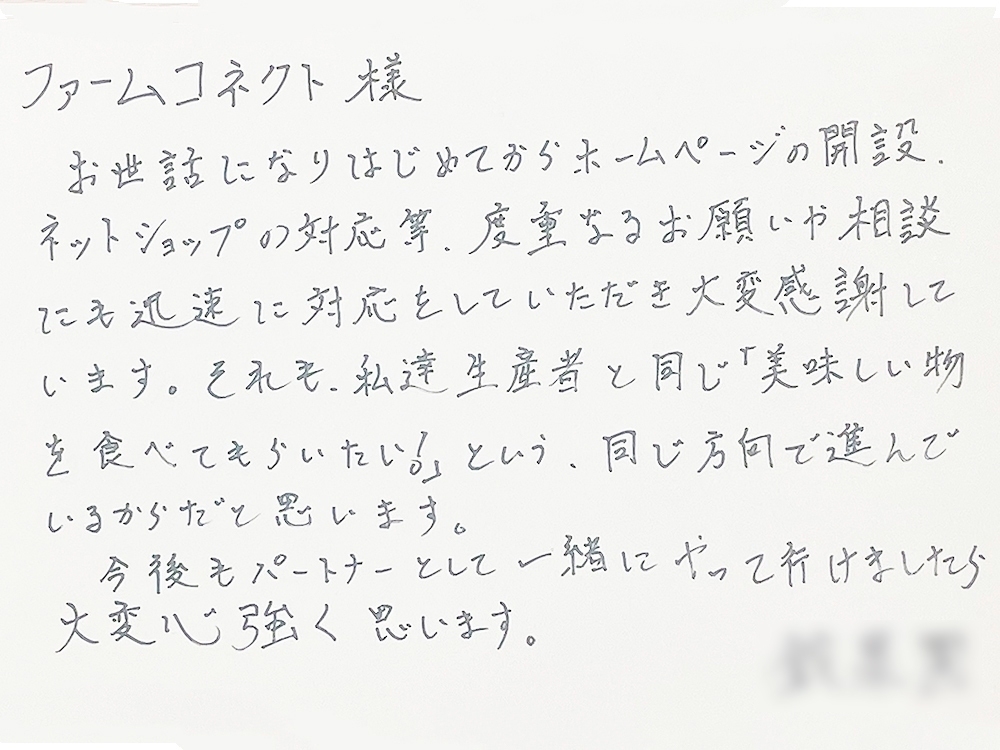 ファームコネクト 様
お世話になりはじめてからホームページの開設、
ネットショップの対応等、度重なるお願いや相談
にも迅速に対応をしていただき大変感謝して
います。それも、私達生産者と同じ「美味しい物
を食べてもらいたい!」という、同じ方向で進んで
いるからだと思います。
今後もパートナーとして一緒にやって行けましたら
大変心強く思います。